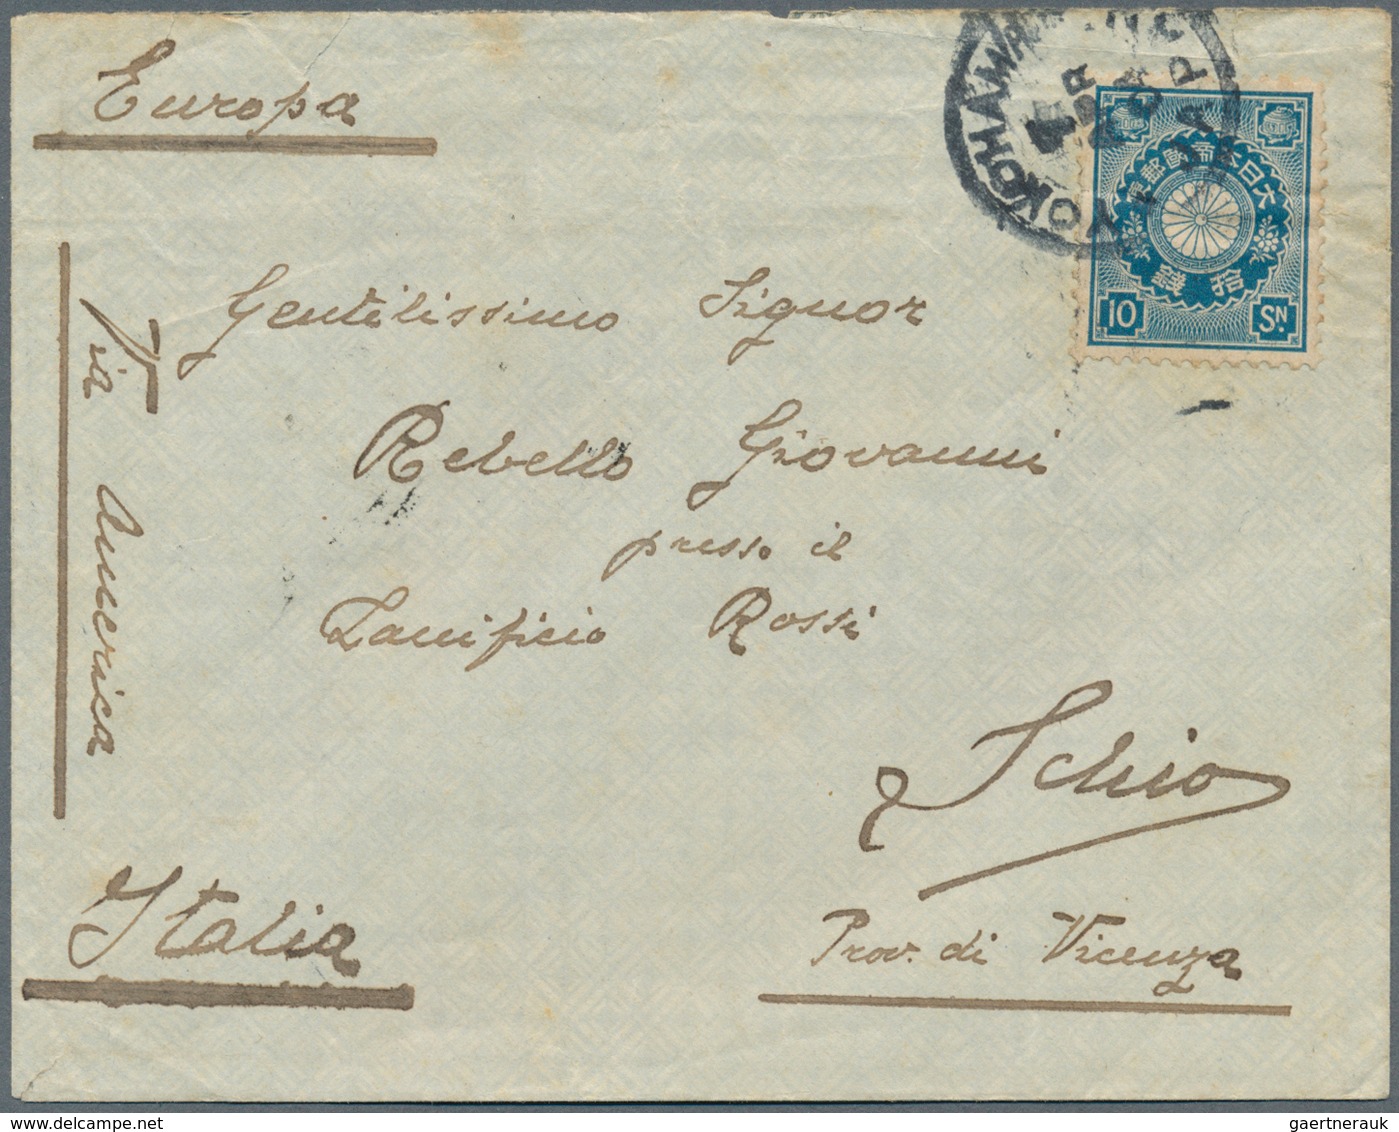 Europa
YOKOHAMA
APR
JAPAN
大日本帝國郵便
拾錢
10 SN.
Via America
Gentilissimo Signor
Rebello Giovanni
presso il
Lanificio Rossi
Schio
Prov. di Vicenza
Italia
gaertnerauk